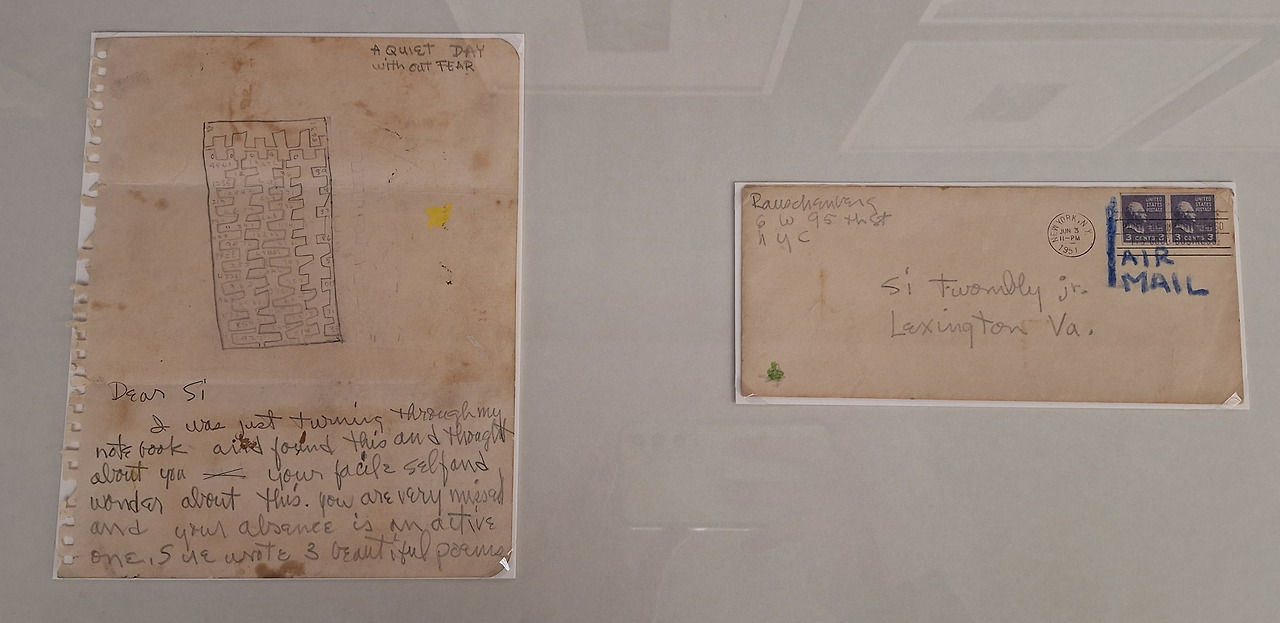 A QUIET DAY
without FEAR
Dear Si
I was just turning through my
note book and found this and thought
about you your facile self and
wonder about this. you are very missed
and your absence is an active
one. Sue wrote 3 beautiful poems
Rauschenberg
6 W 95 th St
n y C
NEW YORK, N.Y.
JUN 3
11-PM
1951
UNITED STATES POSTAGE UNITED STATES POSTAGE
3 CENTS 3 3 CENTS 3
AIR
MAIL
Si Twombly jr.
Lexington Va.